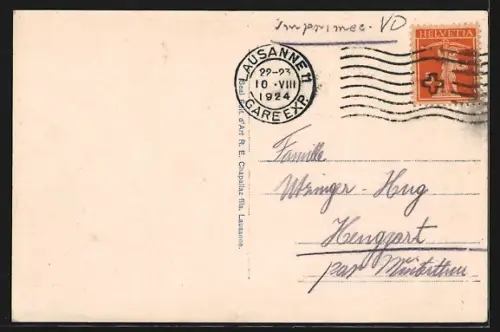 Imprimée. VD
HELVETIA
LAUSANNE 11
22-23
10. VIII
1924
GARE EXP.
Edit. d'Art R. E. Chapallaz fils, Lausanne.
Famille
Hug
Henggart
par Winterthur